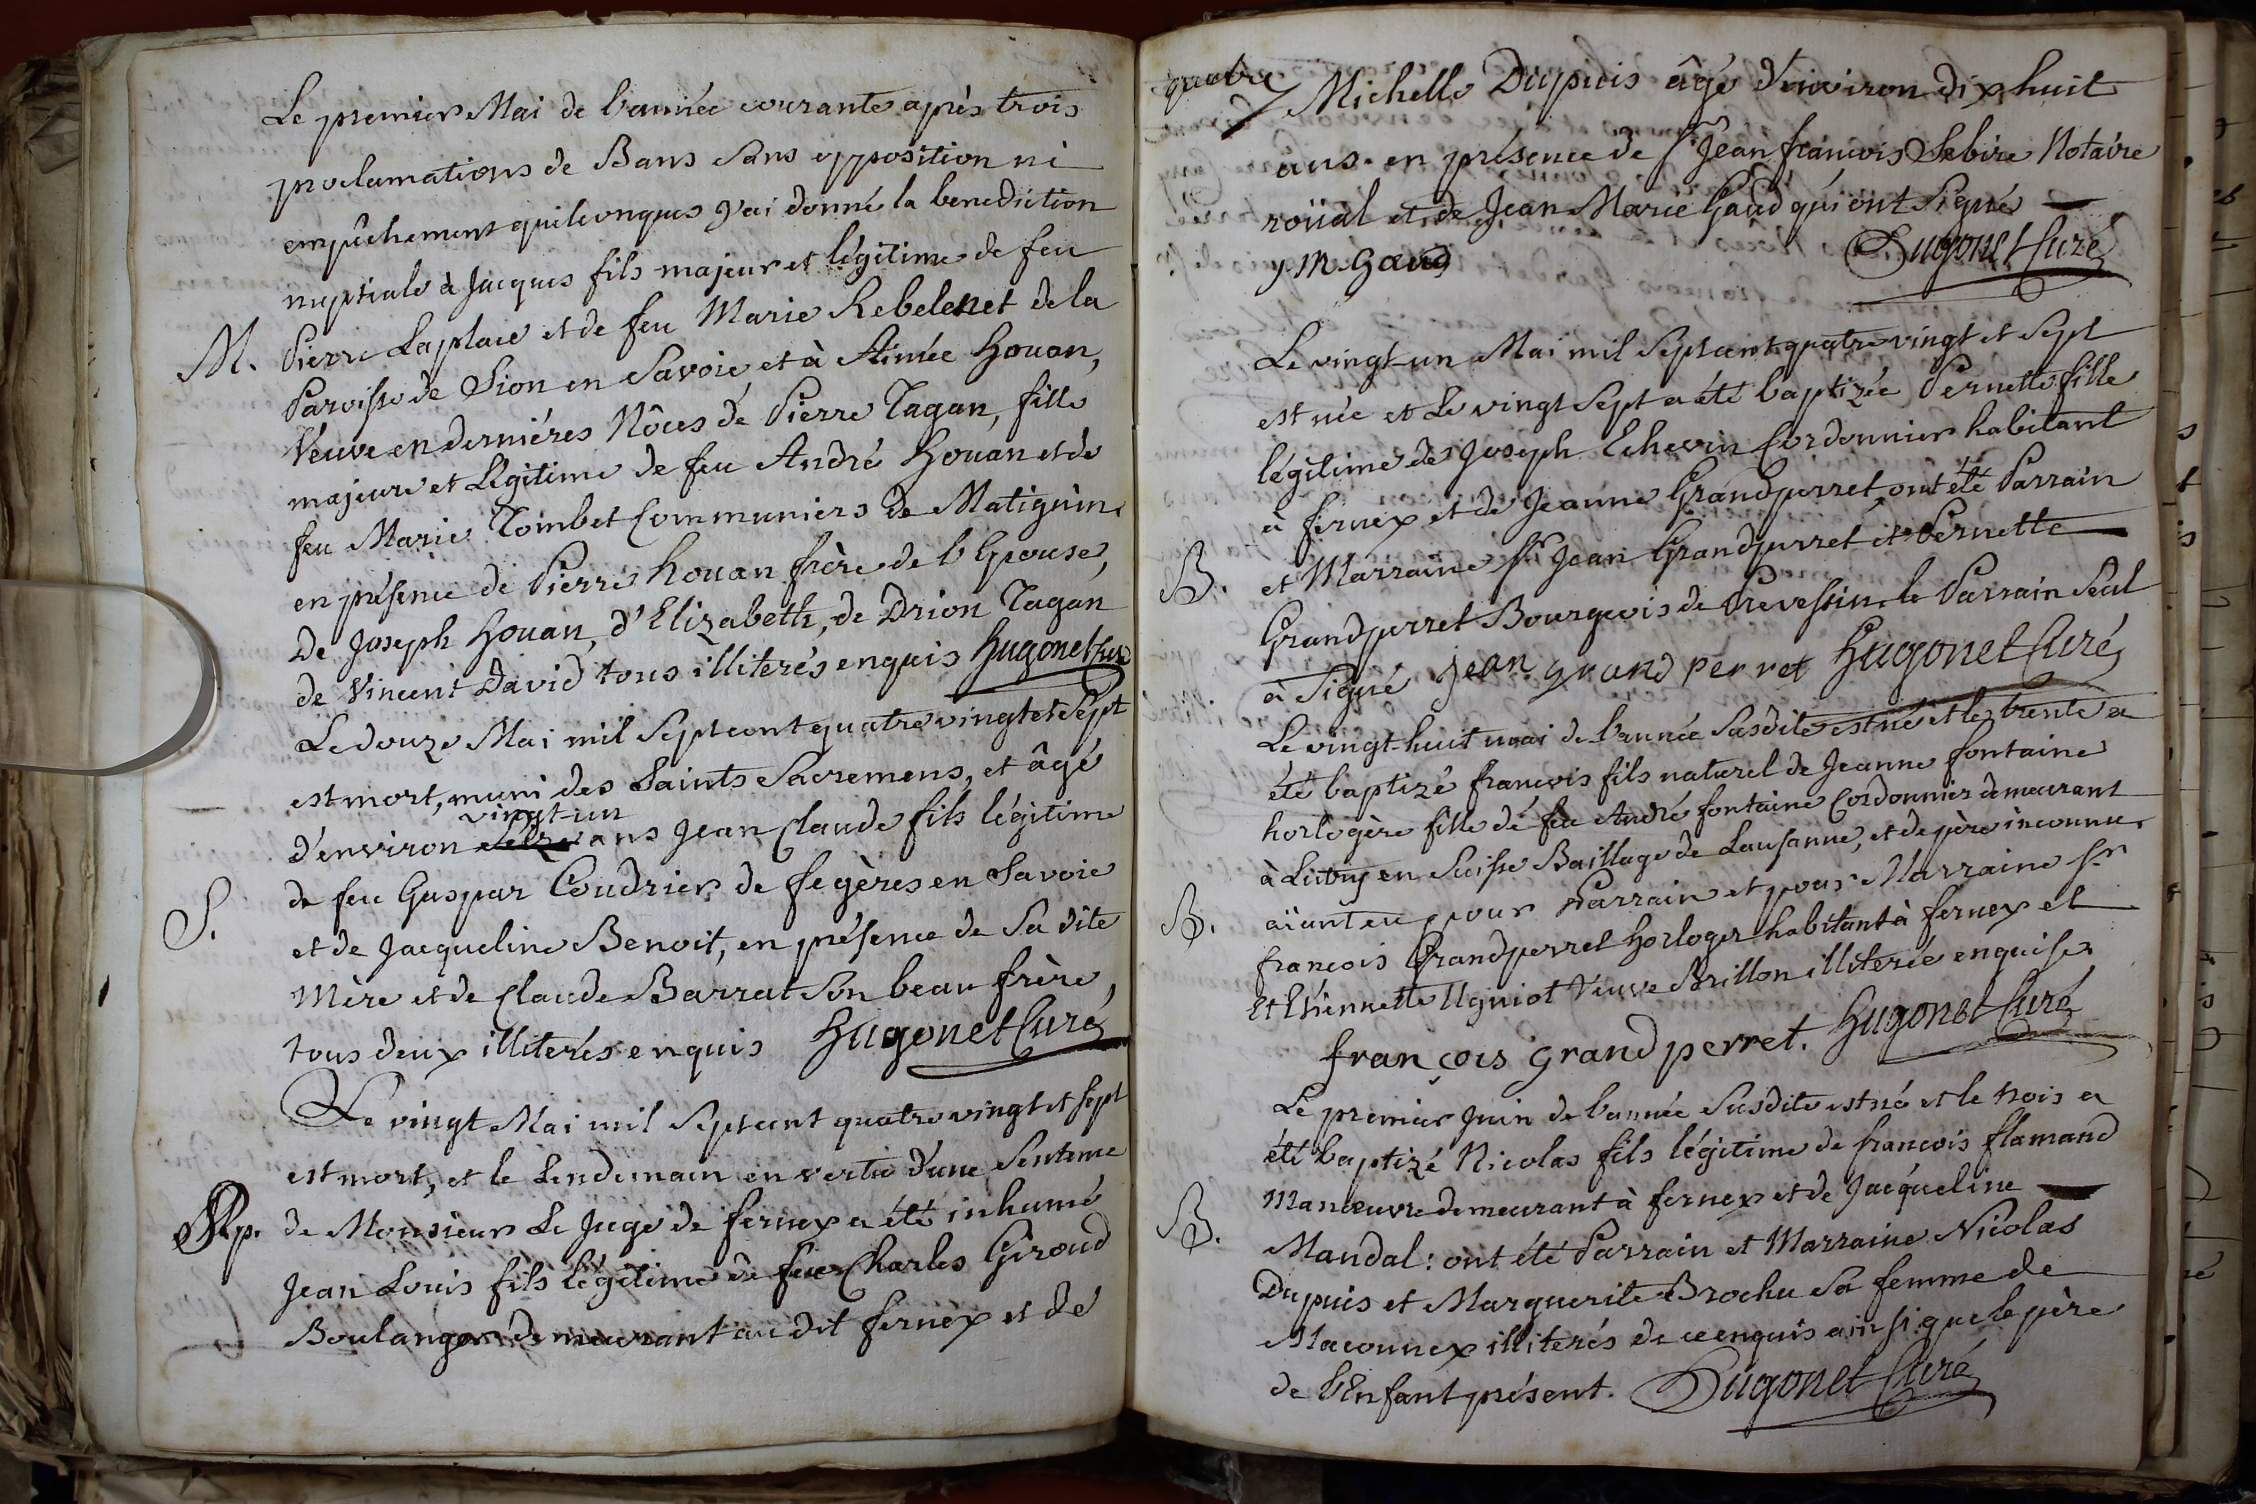 Le premier Mai de l'année courante après trois
proclamations de Bans sans opposition ni
empêchement quelconques j'ai donné la benediction
nuptiale à Jacques fils majeur et légitime de feu
M. Pierre Laplace et de feu Marie Rebelenet de la
Paroisse de Sion en Savoie, et à Aimée Houan,
Veuve en derniéres Nôces de Pierre Tagan, fille
majeure et Légitime de feu André Houan et de
feu Marie Tombet Communiers de Matignin
en présence de Pierre houan frère de l'Epouse,
De Joseph Houan, d'Elizabeth, de Drion Tagan
de Vincent David tous illiterés enquis Hugonet Curé
Le douze Mai mil Sept cent quatre vingt et Sept
est mort, muni des Saints Sacremens, et âgé
vingt-un
d'environ ans Jean Claude fils légitime
S. de feu Gaspar Coudrier de fegères en Savoie
et de Jacqueline Benoit, en présence de Sa dite
Mère et de Claude Barrat Son beau frère,
tous deux illiterés enquis Hugonet Curé
Le vingt Mai mil Sept cent quatre vingt et sept
est mort, et le Lendemain en vertu d'une Sentence
Rp. de Monsieur Le Juge de fernex a été inhumé
Jean Louis fils légitime de feu Charles Giroud
Boulanger demeurant au dit fernex et de
quatre
Michelle Dupuis âgé d'environ dix huit
ans. en présence de Sr Jean francois Sebire Notaire
roïial et de Jean Marie Gaud qui ont Signé
J M Gaud Hugonet Curé
Le vingt-un Mai mil Sept cent quatre vingt et Sept
est née et Le vingt Sept a été baptizée Pernette fille
légitime de Joseph Echevin Cordonnier habitant
à fernex et de Jeanne Grandperret, ont été Parrain
B. et Marraine Sr Jean Grandperret et Pernette
Grandperret Bourgeois de Prevessin, le Parrain Seul
à Signé Jean grand perret Hugonet Curé
Le vingt-huit mai de l'année Susdite est né et le trente a
été baptizé francois fils naturel de Jeanne fontaine
horlogère fille de feu André fontaine Cordonnier demeurant
à Lutry en Suisse Baillage de Lausanne, et de père inconnu,
B. aïant eu pour Parrain et pour Marraine Sr
françois Grandperret Horloger habitant à fernex et
Et Etiennette Ugniot Veuve Brillon illiterée enquise
françois grand perret. Hugonet Curé
Le premier Juin de l'année Susdite est né et le trois a
été baptizé Nicolas fils légitime de francois flamand
Manœuvre demeurant à fernex et de Jacqueline
B. Mandal: ont été Parrain et Marraine Nicolas
Dupuis et Marguerite Brochu Sa femme de
Maconnex illiterés de ce enquis ainsi que le père
de l'Enfant présent. Hugonet Curé